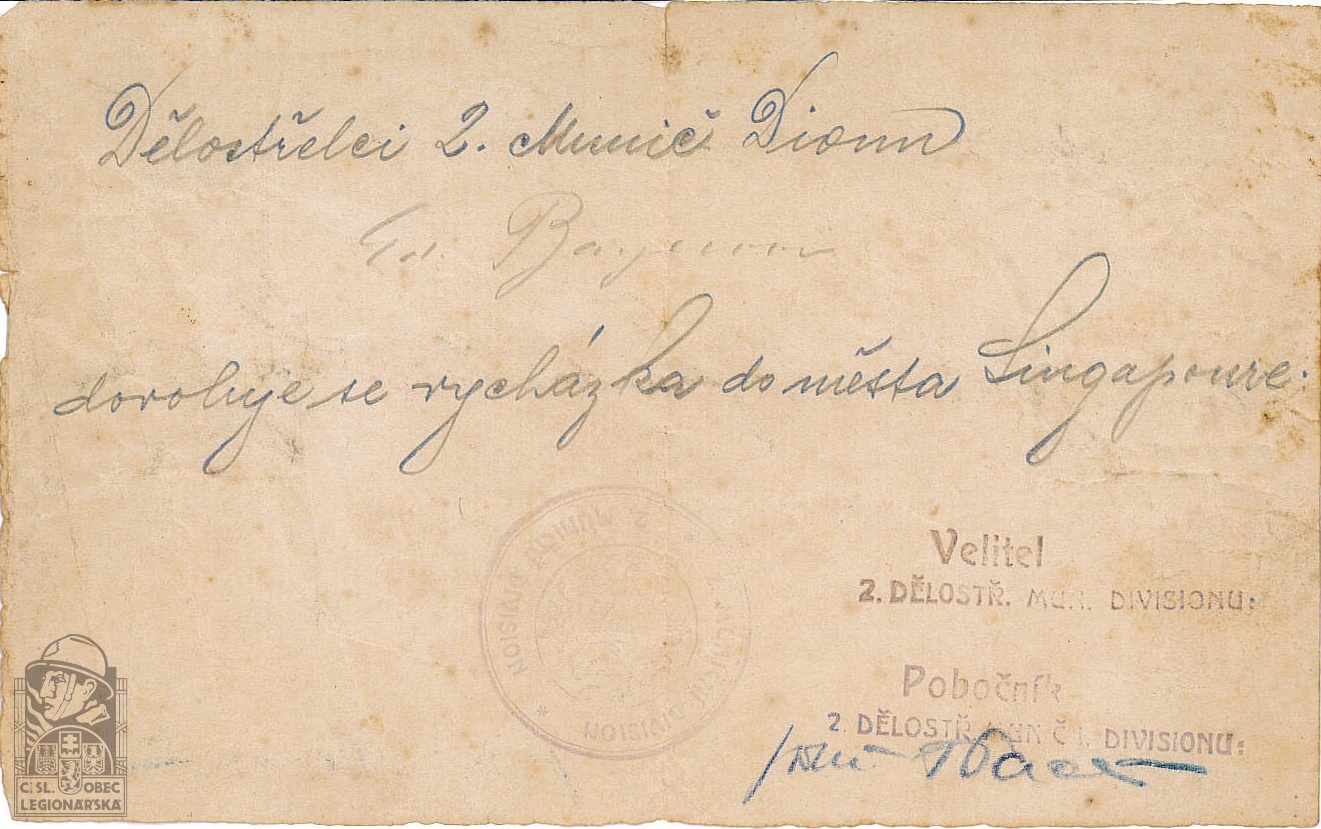 Dělostřelci 2. Munič Dionu
Bayerovi
dovoluje se vycházka do města Singapoure.
2. MUNIČNÍ DIVISION
Velitel
2. DĚLOSTŘ. MU.I. DIVISIONU:
Pobočník
2. DĚLOSTŘ. MUN Č I. DIVISIONU:
Č.SL. OBEC
LEGIONÁŘSKÁ